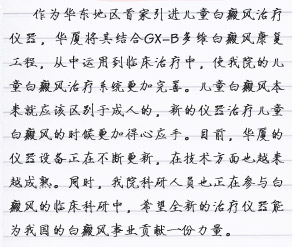 作为华东地区首家引进儿童白癜风治疗
仪器，华厦将其结合GX-B多维白癜风康复
工程，从中运用到临床治疗中，使我院的儿
童白癜风治疗系统更加完善。儿童白癜风本
来就应该区别于成人的，新的仪器治疗儿童
白癜风的时候更加得心应手。目前，华厦的
仪器设备正在不断更新，在技术方面也越来
越成熟。同时，我院科研人员也正在参与白
癜风的临床科研中，希望全新的治疗仪器能
为我国的白癜风事业贡献一份力量。